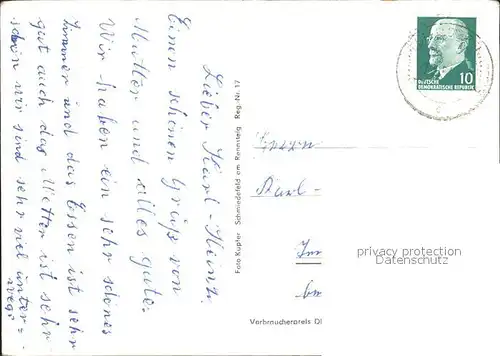 Lieber Karl-Heinz.
Einen schönen Gruß von
Mutter und alles gute.
Wir haben ein sehr schönes
Zimmer und das Essen ist sehr
gut auch das Wetter ist sehr
schön wir sind sehr viel unter=
wegs
Foto Kupfer Schmiedefeld am Rennsteig Reg.-Nr. 17
DEUTSCHE
DEMOKRATISCHE REPUBLIK
10
Herrn
Karl-
privacy protection
Datenschutz
Verbraucherpreis DI